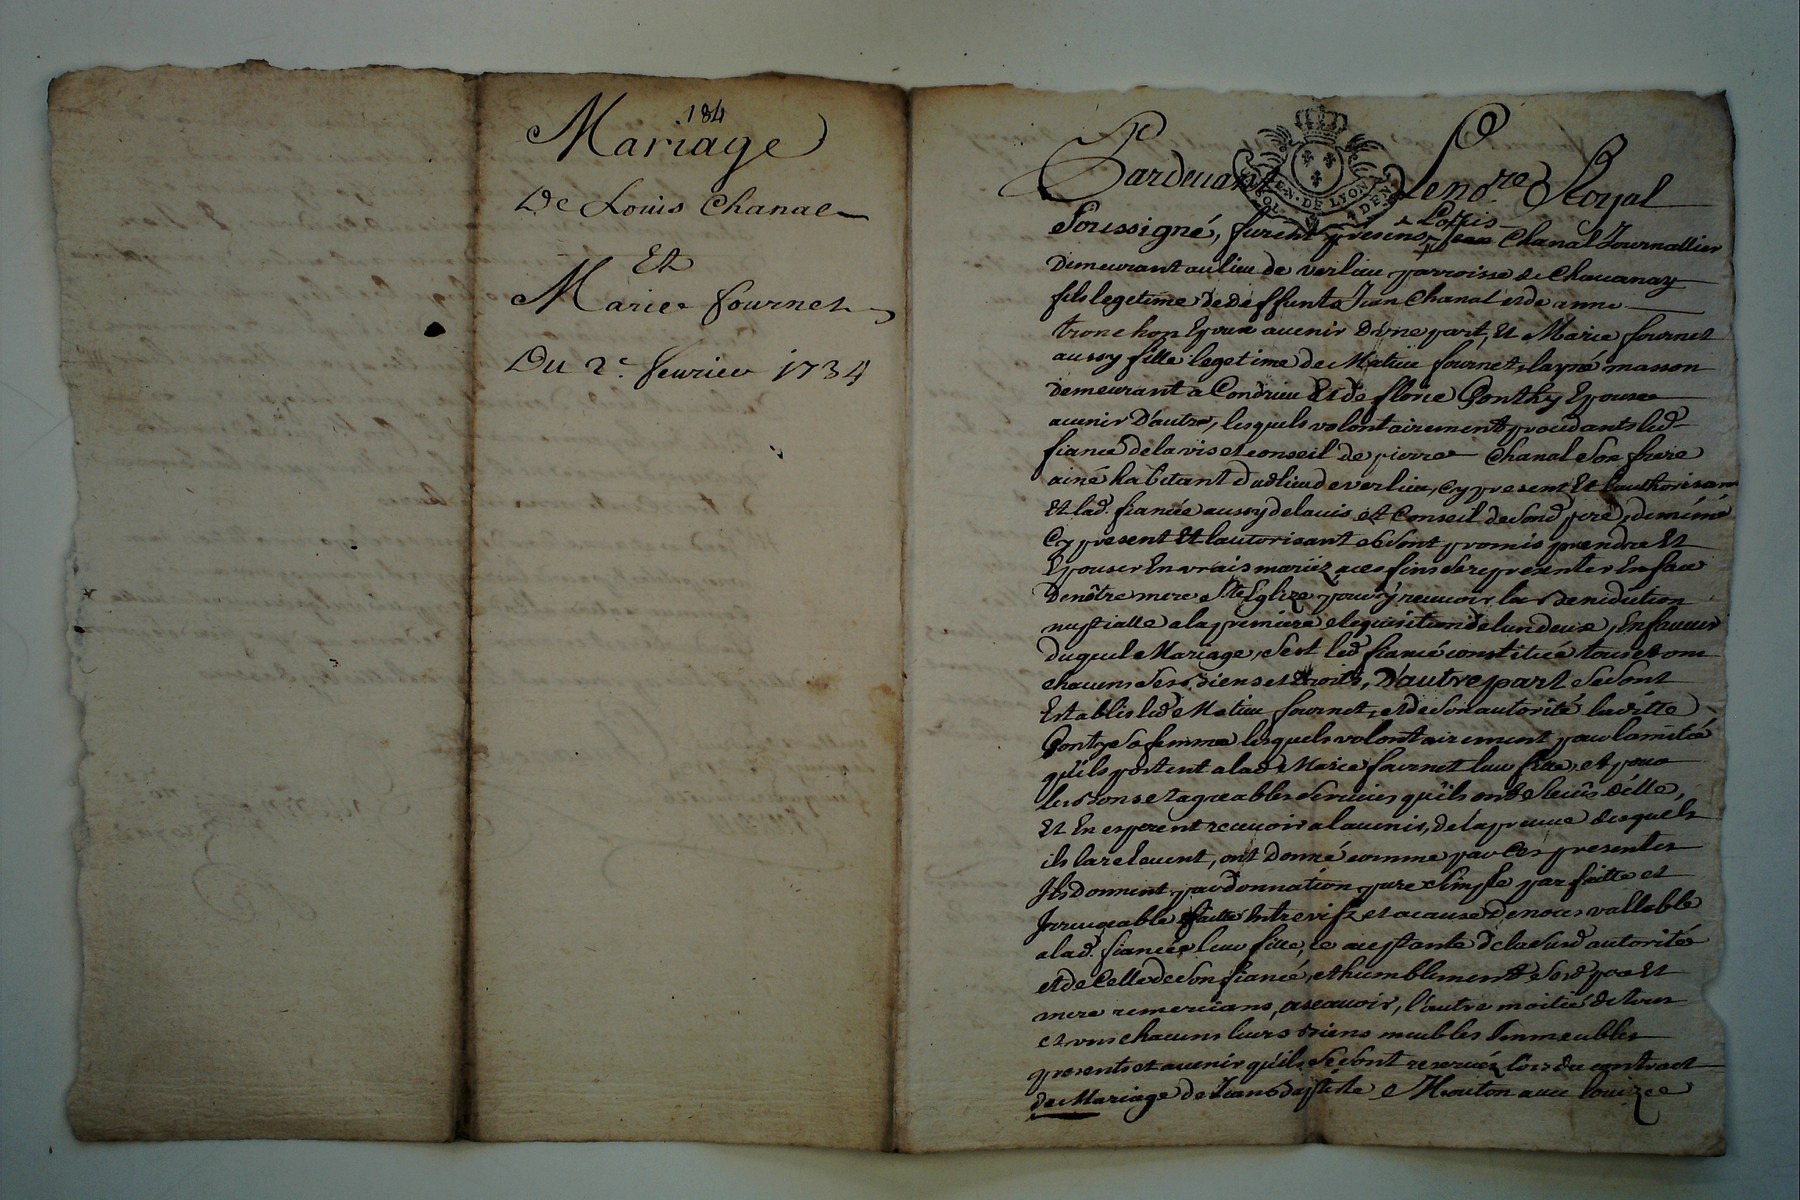 184
Mariage
De Louis Chanal
Et
Marie fournet
Du 2e. fevrier 1734
Pardevant Le no.re Royal
GEN. DE LYON
Soussigné, furent presens, Louis Chanal Journallier
demeurant au lieu de verlieu parroisse de Chavanay
fils legetime de deffunts Jean Chanal et de anne
tronchon Epoux avenir D'une part, Et Marie fournet
aussy fille legetime de Matieu fournet, layné masson
demeurant a Condrieu Et de florie Gonthy Epouse
avenir D'autre, lesquels volontairement procedants led.
fiancé de lavis et conseil de pierre Chanal son frere
ainé habitant dud lieu de verlieu, cy present Et lauthorisant
Et lad. fiancée aussy de lavis et Conseil de sond. pere, de même
Cy present Et lautorisant se sont promis prendre Et
Epouser En vrais mariez a ces fins se representer En face
De nôtre mere Ste Eglize pour y recevoir la Benidiction
nuptialle a la premiere requisition de lun deux, En faveur
duquel Mariage, s'est led. fiancé constitué tous et un
chacuns ses biens et droits, D'autre part se sont
Establis led. Matieu fournet, et de son autorité laditte
Gonty sa femme lesquels volontairement pour lamitié
qu'ils portent a lad. Marie fournet leur fille, et pour
les bons et agreables services qu'ils ont Reçûs d'elle,
Et En esperent recevoir a lavenir, de la preuve desquels
ils la relevent, ont Donné comme par Ces presentes
Ils donnent par donnation pure simple parfaitte et
Irrevocable faitte Entre vifs et a cause de noces vallable
a lad. fiancée leur fille, ce aceptante de la susd. autorité
et de Celle de son fiancé, et humblement sesd. pere Et
mere remercians, a scavoir, l'autre moitié de tous
et uns chacuns leurs biens meubles Immeubles
presents et avenir qu'ils se sont reservéz lors du contract
de Mariage de Jean Baptiste Mouton avec louize